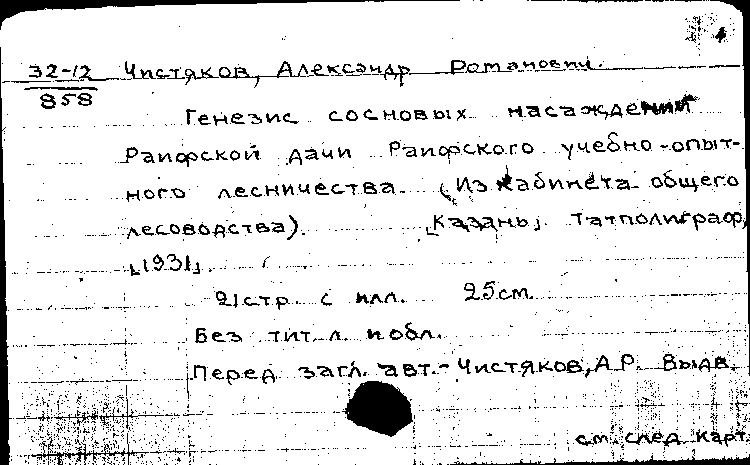 32-12 Чистяков, Александр Романович.
858
Генезис сосновых насаждений
Раифской дачи Раифского учебно-опыт-
ного лесничества. (Из кабинета общего
лесоводства). [Казань], Татполиграф,
[1931].
21стр. с илл. 25см.
Без тит. л. и обл.
Перед загл. авт.- Чистяков, А.Р. Выдв.
см. след. карт.